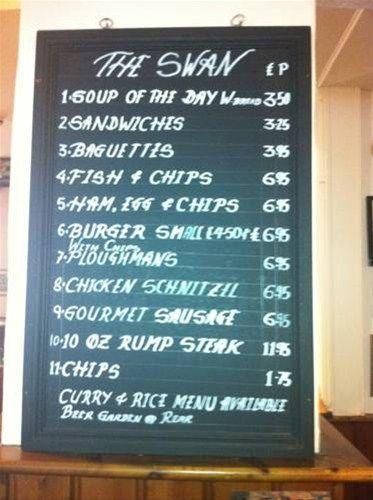 THE SWAN £ P
1. SOUP OF THE DAY W. BREAD 3.50
2. SANDWICHES 3.25
3. BAGUETTES 3.95
4. FISH & CHIPS 6.95
5. HAM, EGG & CHIPS 6.95
6. BURGER SMALL £4.50 & £6.95
WITH CHIPS
7. PLOUGHMANS 6.95
8. CHICKEN SCHNITZIL 6.95
9. GOURMET SAUSAGE 6.95
10. 10 OZ RUMP STEAK 11.95
11. CHIPS 1.75
CURRY & RICE MENU AVAILABLE
BEER GARDEN @ REAR